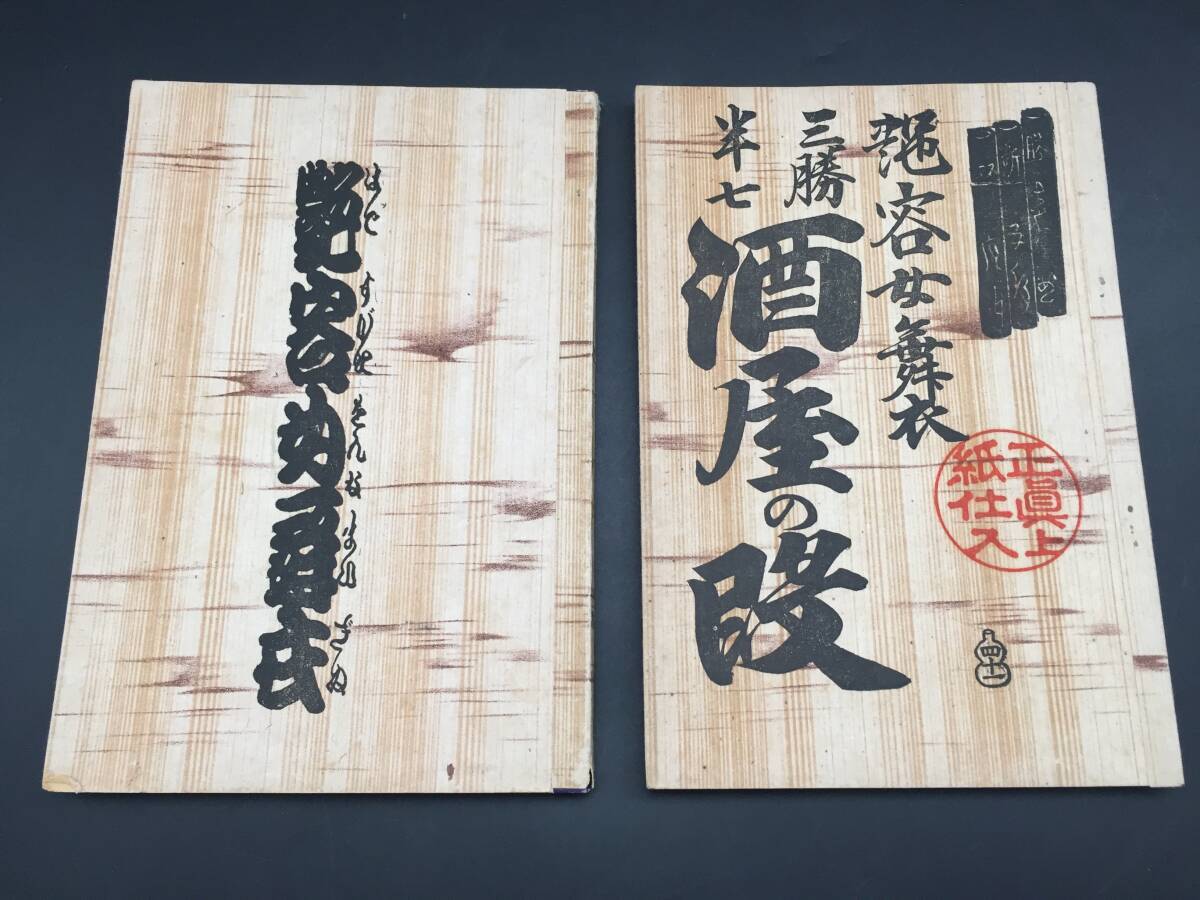 艶容女舞衣
三勝
半七
酒屋の段
正眞上
紙仕入
四十一
はで すがた をんな まひ ぎぬ
艶容女舞衣